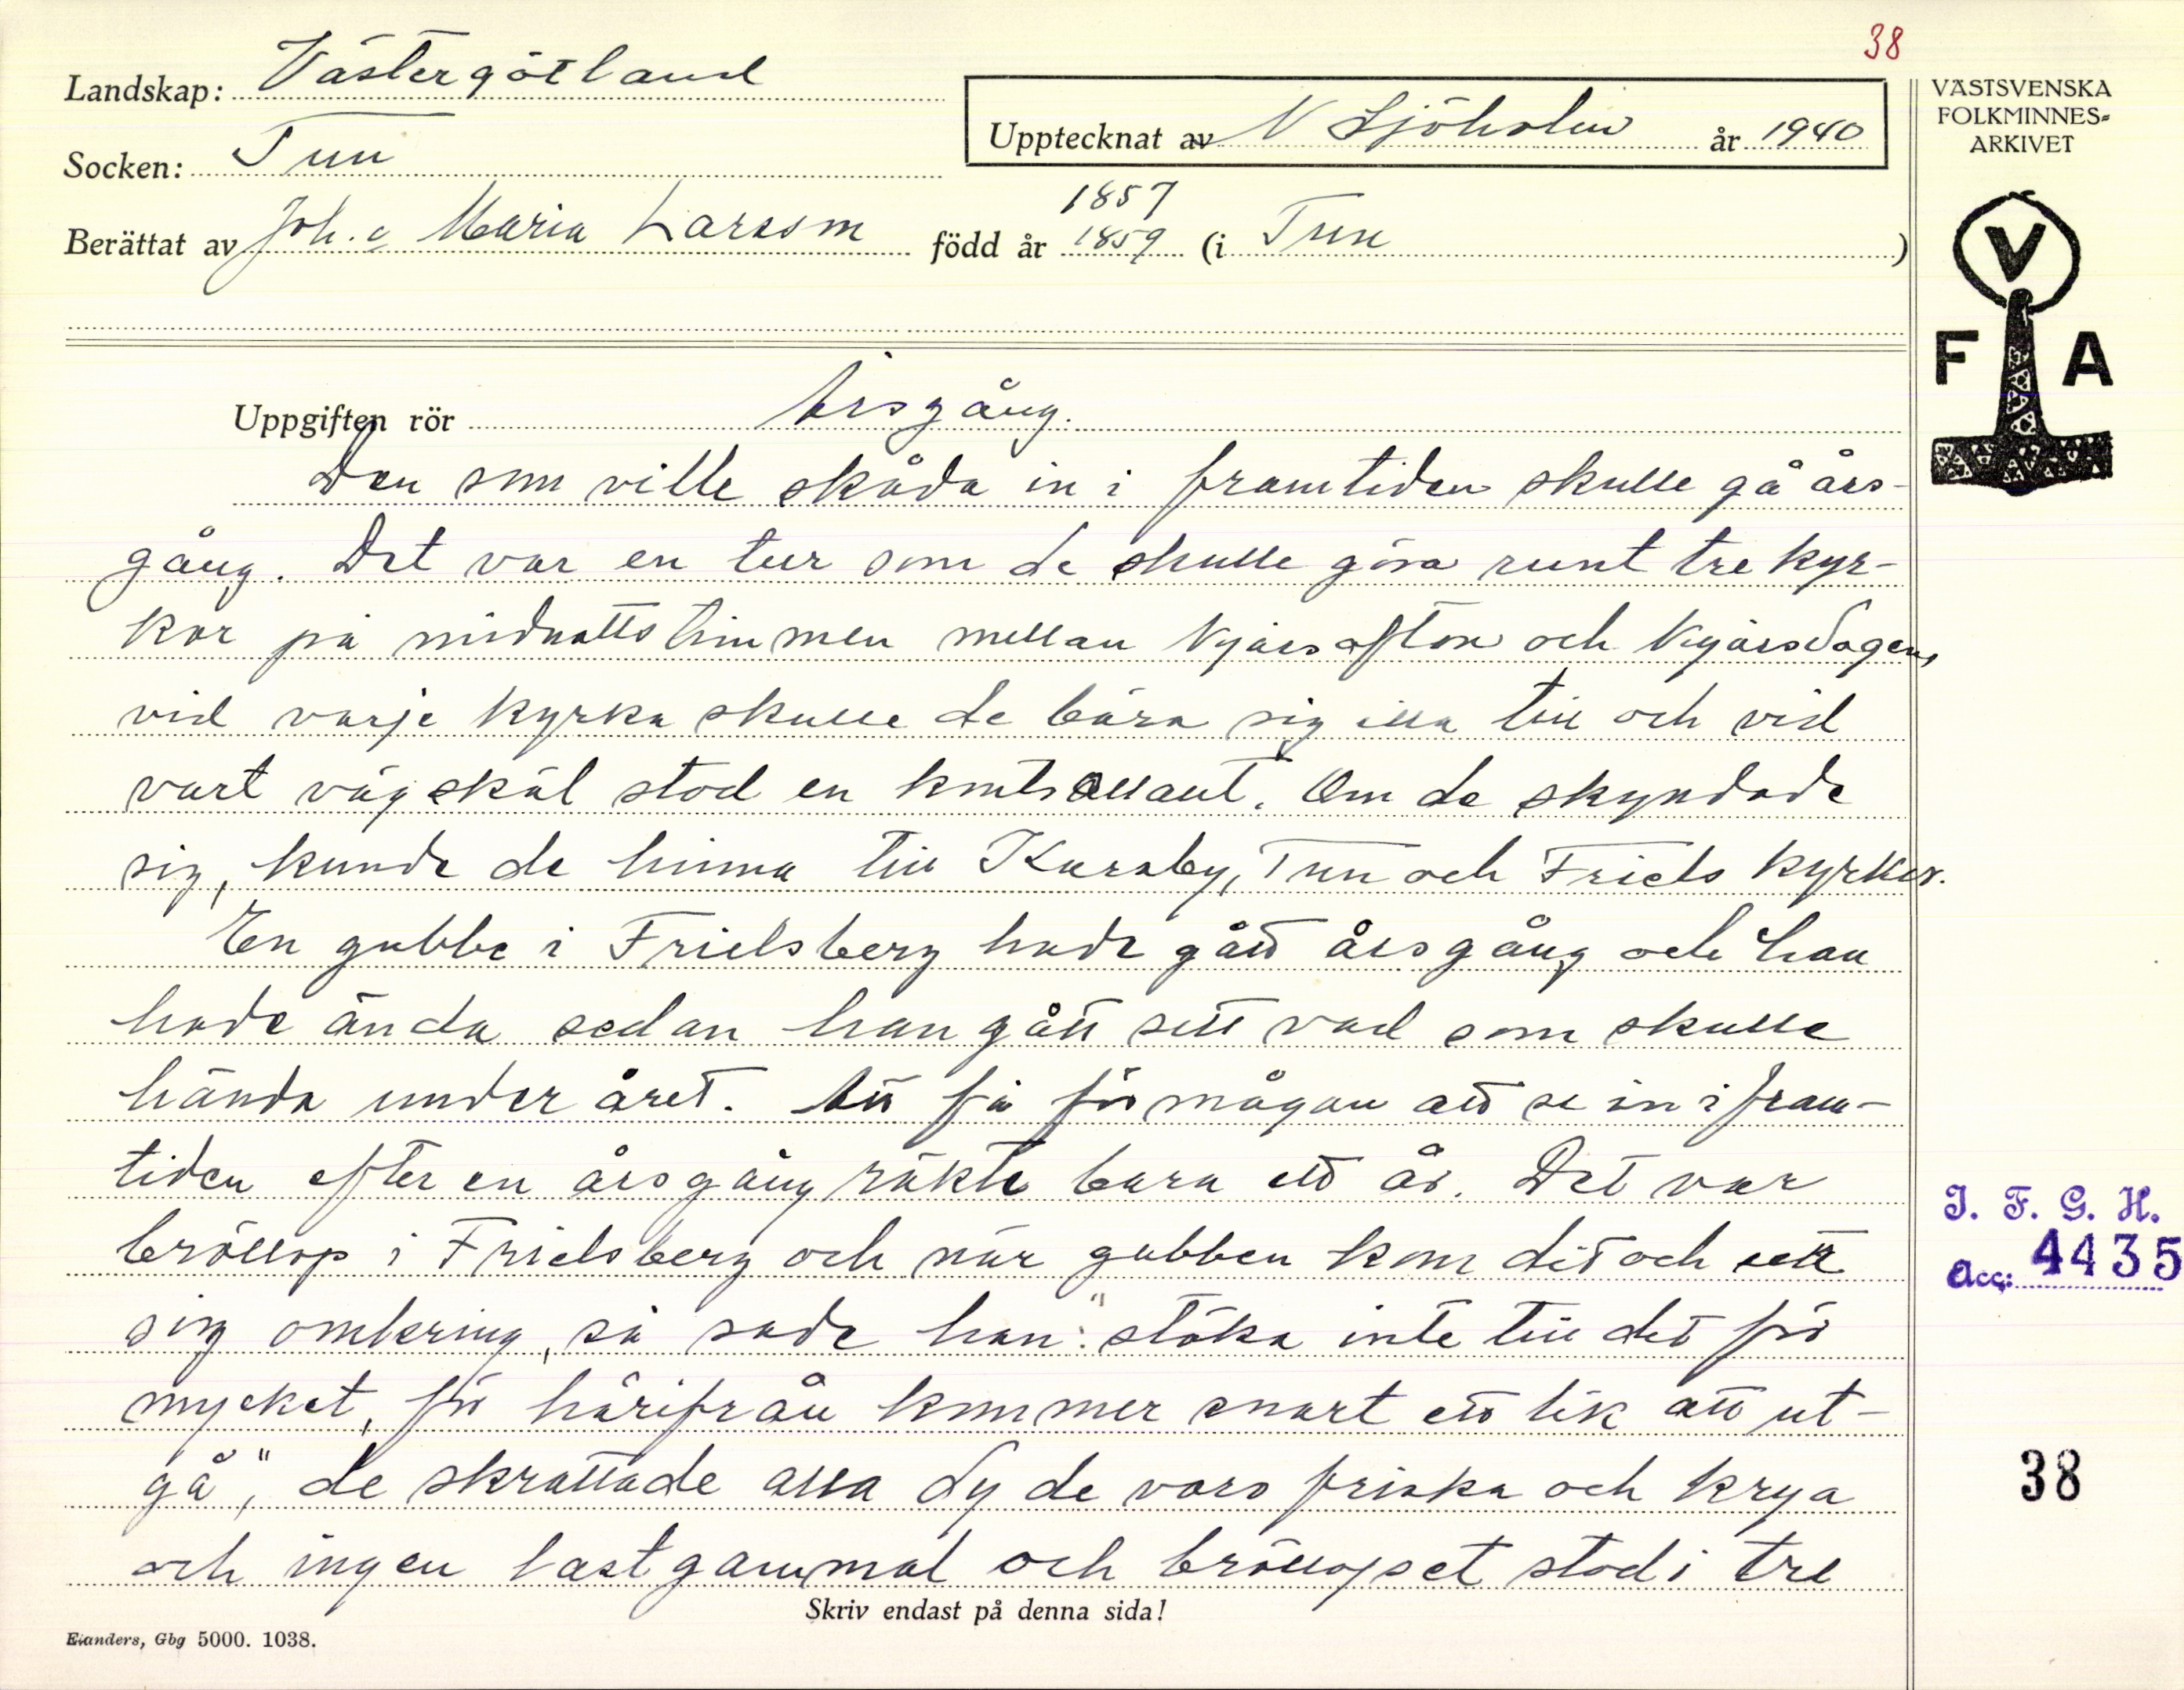 38
Landskap: Västergötland
Socken: Tun
Upptecknat av N Sjöholm år 1940
Berättat av Joh. o Maria Larsson född år 1857 1859 (i Tun)
VÄSTSVENSKA
FOLKMINNES-
ARKIVET
V
F A
Uppgiften rör Årsgång.
Den som ville skåda in i framtiden skulle gå års-
gång. Det var en tur som de skulle göra runt tre kyr-
kor på midnattstimmen mellan Nyårsafton och Nyårsdagen,
vid varje kyrka skulle de bära sig illa till och vid
vart vägskäl stod en kontrollant. Om de skyndade
sig, kunde de hinna till Karaby, Tun och Friels kyrkor.
En gubbe i Frielsberg hade gått årsgång och han
hade ända sedan han gått sett vad som skulle
hända under året. Att få förmågan att se in i fram-
tiden efter en årsgång räkte bara ett år. Det var
bröllop i Frielsberg och när gubben kom dit och sett
sig omkring, så sade han: "stöka inte till det för
mycket, för härifrån kommer snart ett lik att ut-
gå", de skrattade alla dy de voro friska och krya
och ingen lastgammal och bröllopset stod i tre
Skriv endast på denna sida!
Elanders, Gbg 5000. 1038.
I. F. G. H.
Acc: 4435
38